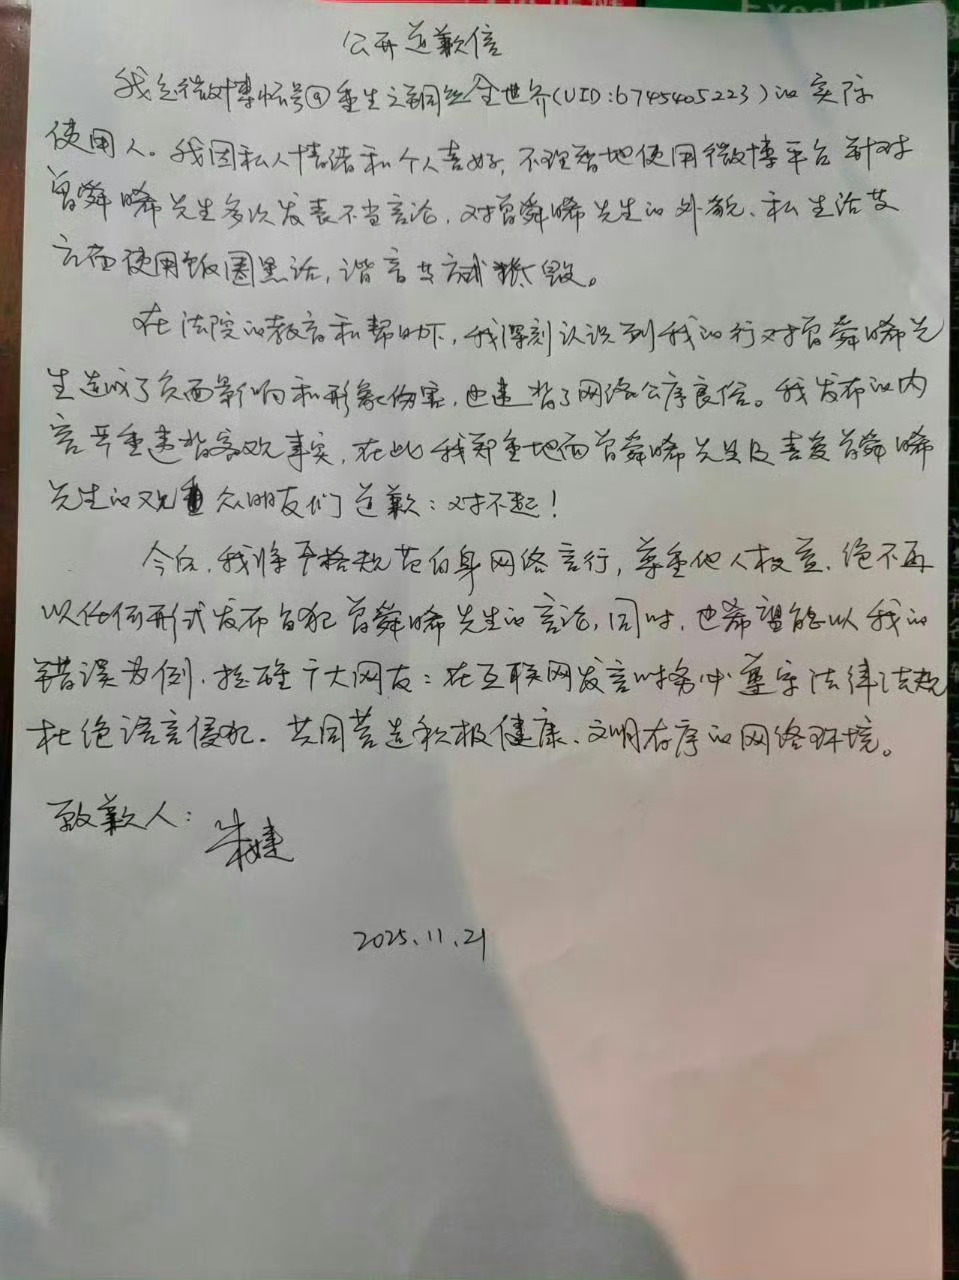 公开道歉信
我是微博帐号@重生之铜丝全世界(UID:6745405223)的实际
使用人。我因私人情绪和个人喜好,不理智地使用微博平台针对
曾舜晞先生多次发表不当言论,对曾舜晞先生的外貌、私生活等
方面使用饭圈黑话,谐音等方式抵毁。
在法院的教育和帮助下,我深刻认识到我的行对曾舜晞先
生造成了负面影响和形象伤害,也违背了网络公序良俗。我发布的内
容严重违背客观事实,在此我郑重地向曾舜晞先生及喜爱曾舜晞
先生的观众朋友们道歉:对不起!
今后,我将严格规范自身网络言行,尊重他人权益、绝不再
以任何形式发布冒犯曾舜晞先生的言论,同时,也希望能以我的
错误为例,提醒广大网友:在互联网发言时务必遵守法律法规
杜绝语言侵犯.共同营造积极健康、文明有序的网络环境。
致歉人:
朱婕
2025.11.21
Excel